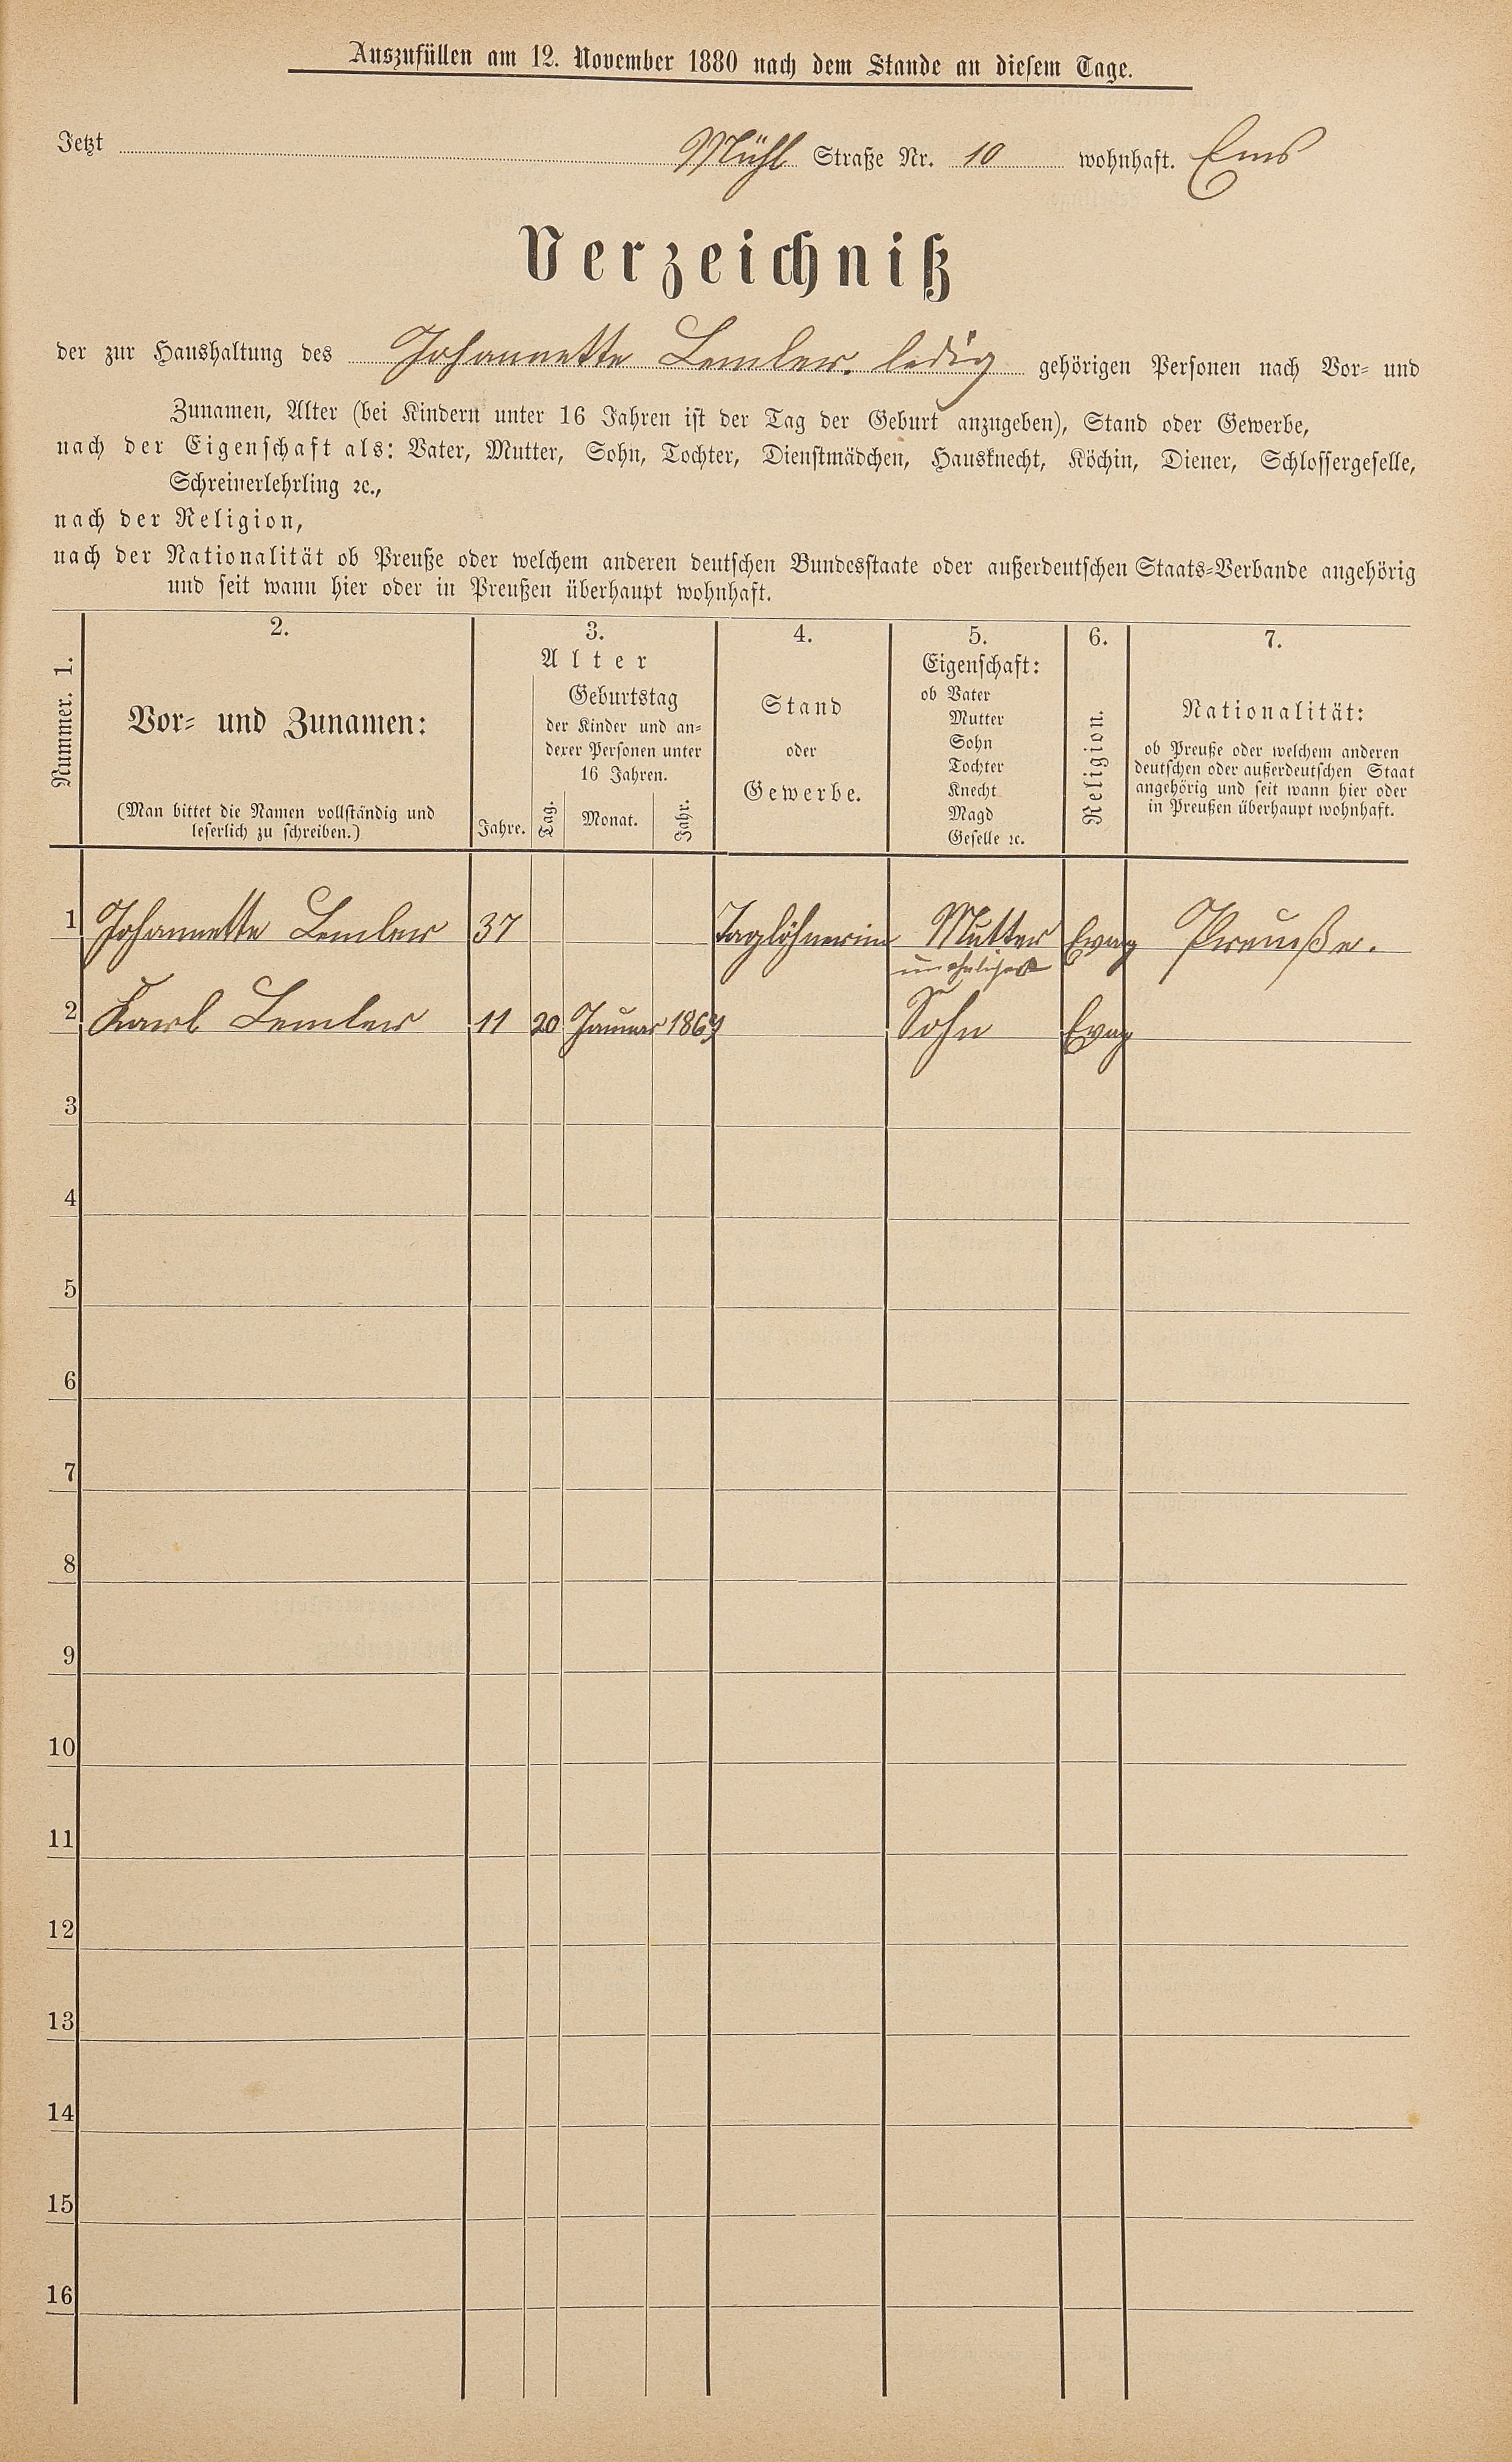 Auszufüllen am 12. November 1880 nach dem Stande an diesem Tage.
Jetzt Mühl Straße Nr. 10 wohnhaft. Ems
Verzeichniß
der zur Haushaltung des Johannette Lemler. ledig gehörigen Personen nach Vor- und
Zunamen, Alter (bei Kindern unter 16 Jahren ist der Tag der Geburt anzugeben), Stand oder Gewerbe,
nach der Eigenschaft als: Vater, Mutter, Sohn, Tochter, Dienstmädchen, Hausknecht, Köchin, Diener, Schlossergeselle,
Schreinerlehrling ꝛc.,
nach der Religion,
nach der Nationalität ob Preuße oder welchem anderen deutschen Bundesstaate oder außerdeutschen Staats-Verbande angehörig
und seit wann hier oder in Preußen überhaupt wohnhaft.
Nummer. 1.
2.
Vor- und Zunamen:
(Man bittet die Namen vollständig und
leserlich zu schreiben.)
3.
Alter
Jahre.
Geburtstag
der Kinder und an-
derer Personen unter
16 Jahren.
Tag. Monat. Jahr.
4.
Stand
oder
Gewerbe.
5.
Eigenschaft:
ob Vater
Mutter
Sohn
Tochter
Knecht
Magd
Geselle ꝛc.
6.
Religion.
7.
Nationalität:
ob Preuße oder welchem anderen
deutschen oder außerdeutschen Staat
angehörig und seit wann hier oder
in Preußen überhaupt wohnhaft.
1 Johannette Lemler 37 Taglöhnerin Mutter Evag Preuße.
unehlicher
2 Karl Lemler 11 20 Januar 1869 Sohn Evag
3
4
5
6
7
8
9
10
11
12
13
14
15
16